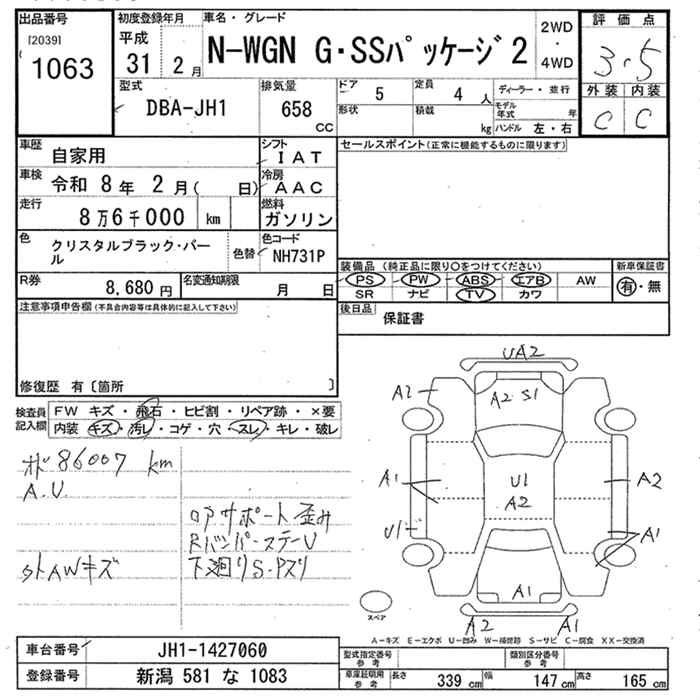 出品番号 初度登録年月 車名・グレード 2WD・4WD 評価点
[2039]
1063
平成 31年 2月 N-WGN G・SSパッケージ2 3.5
型式 排気量 ドア 5 定員 4人 ディーラー・並行 外装 内装
DBA-JH1 658 CC 形状 積載 kg モデル年式 年 C C
ハンドル 左・右
車歴 自家用 シフト IAT セールスポイント(正常に機能するものに限ります)
車検 令和 8年 2月( 日) 冷房 AAC
走行 8万6千000 km 燃料 ガソリン
色 クリスタルブラック・パール 色替 色コード NH731P
装備品(純正品に限り○をつけてください) 新車保証書
R券 8,680円 名変通知期限 月 日 PS PW ABS エアB AW 有・無
SR ナビ TV カワ
注意事項申告欄(不具合内容等は具体的に記入して下さい) 後日品 保証書
修復歴 有〔箇所 〕
検査員記入欄 FW キズ・飛石・ヒビ割・リペア跡・×要
内装 キズ・汚レ・コゲ・穴・スレ・キレ・破レ
UA2
A2 A2 S1
オド 86007 km
A.U
A1 U1 A2 A2
ロアサポート歪み
RバンパーステーU
外AWキズ 下廻りS・Pズリ
U1 A1
A1
スペア A2 A1
A-キズ E-エクボ U-凹み W-補修跡 S-サビ C-腐食 XX-交換済
車台番号 JH1-1427060 型式指定番号 参考 類別区分番号 参考
登録番号 新潟 581 な 1083 車庫証明用 参考 長さ 339cm 幅 147cm 高さ 165cm